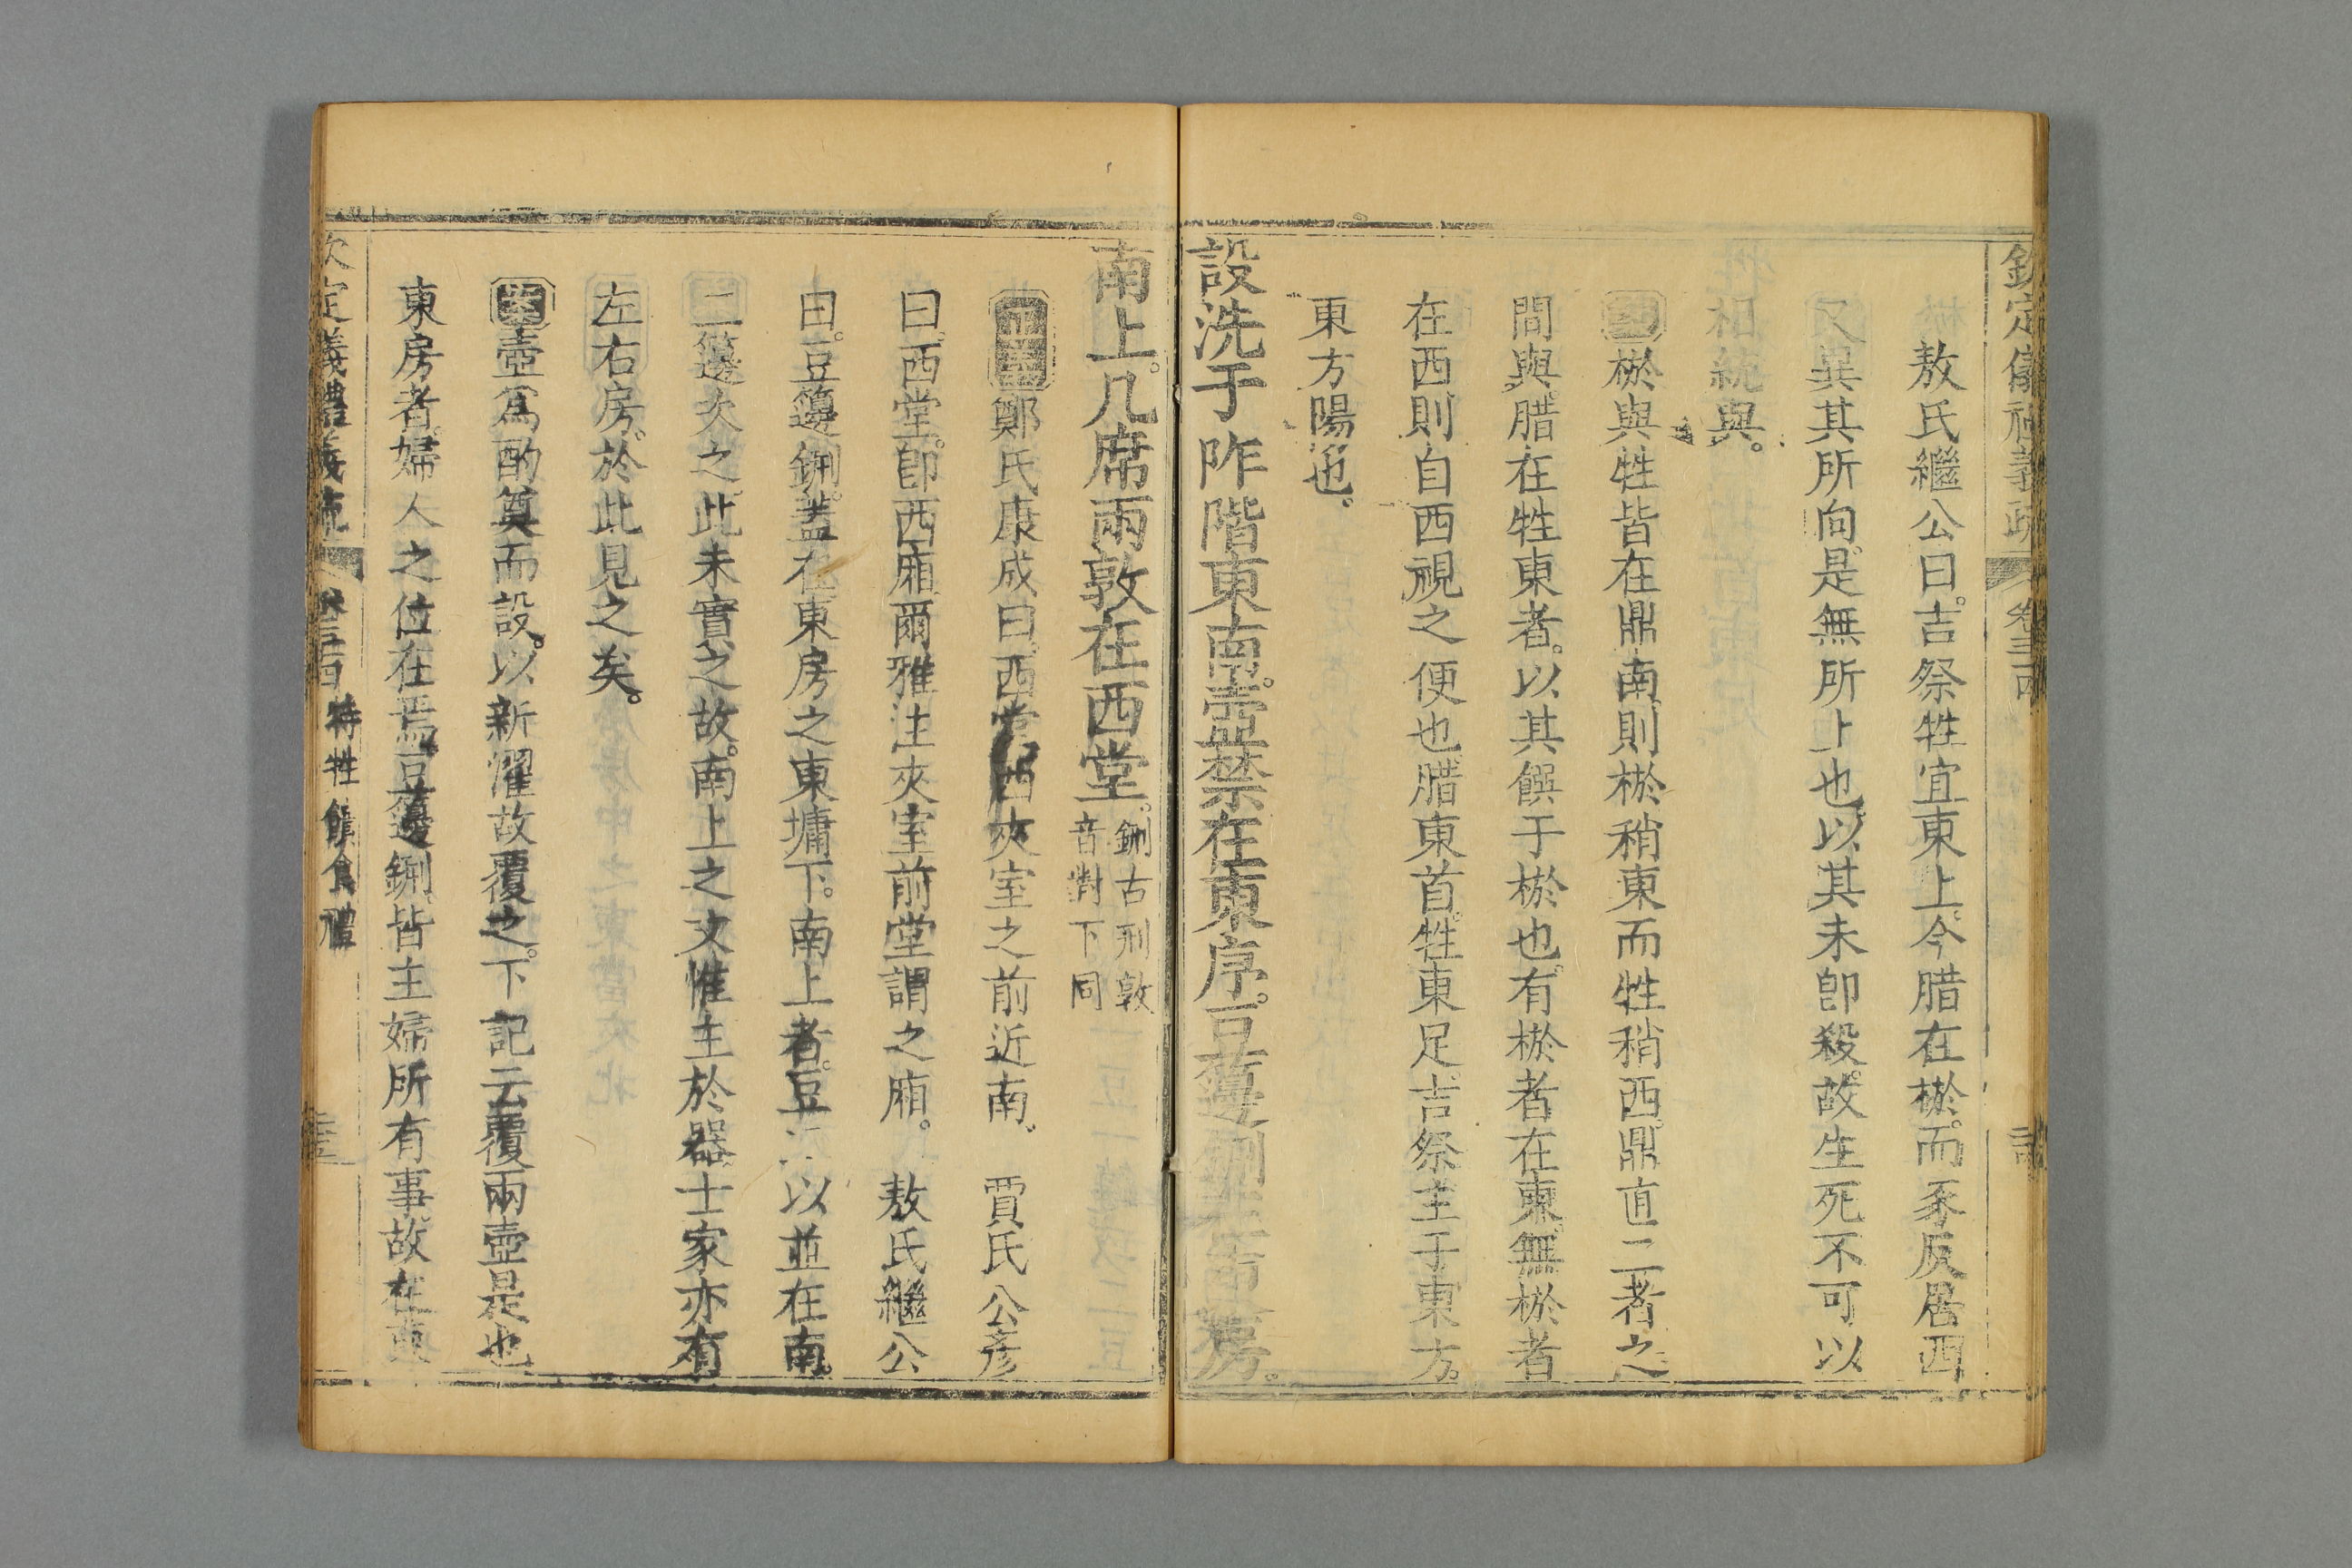 欽定儀禮義疏 卷三十四
敖氏繼公曰。吉祭牲宜東上。今腊在棜。而豕反居西
又異其所向。是無所上也。以其未卽殺。故生死不可以
相統與。
案棜與牲皆在鼎南。則棜稍東而牲稍西。鼎直二者之
間與。腊在牲東者。以其饌于棜也。有棜者在東。無棜者
在西。則自西視之便也。腊東首。牲東足。吉祭主于東方。
東方陽也。
設洗于阼階東南。壺禁在東序。豆籩鉶在東房。
南上。几席兩敦在西堂。
鉶古刑敦
音對下同
鄭氏康成曰。西堂西夾室之前近南。 賈氏公彥
曰。西堂。卽西廂。爾雅注夾室前堂謂之廂。 敖氏繼公
曰。豆籩鉶。蓋在東房之東墉下。南上者。豆 以並在南。
二籩次之。此未實之故。南上之文惟主於器。士家亦有
左右房。於此見之矣。
案壺爲酌奠而設。以新濯故覆之。下記云覆兩壺是也
東房者。婦人之位在焉。豆籩鉶皆主婦所有事。故在東
欽定義禮義疏 特牲饋食禮